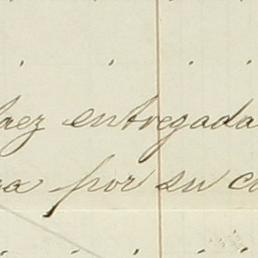 aez entregada
a por su c